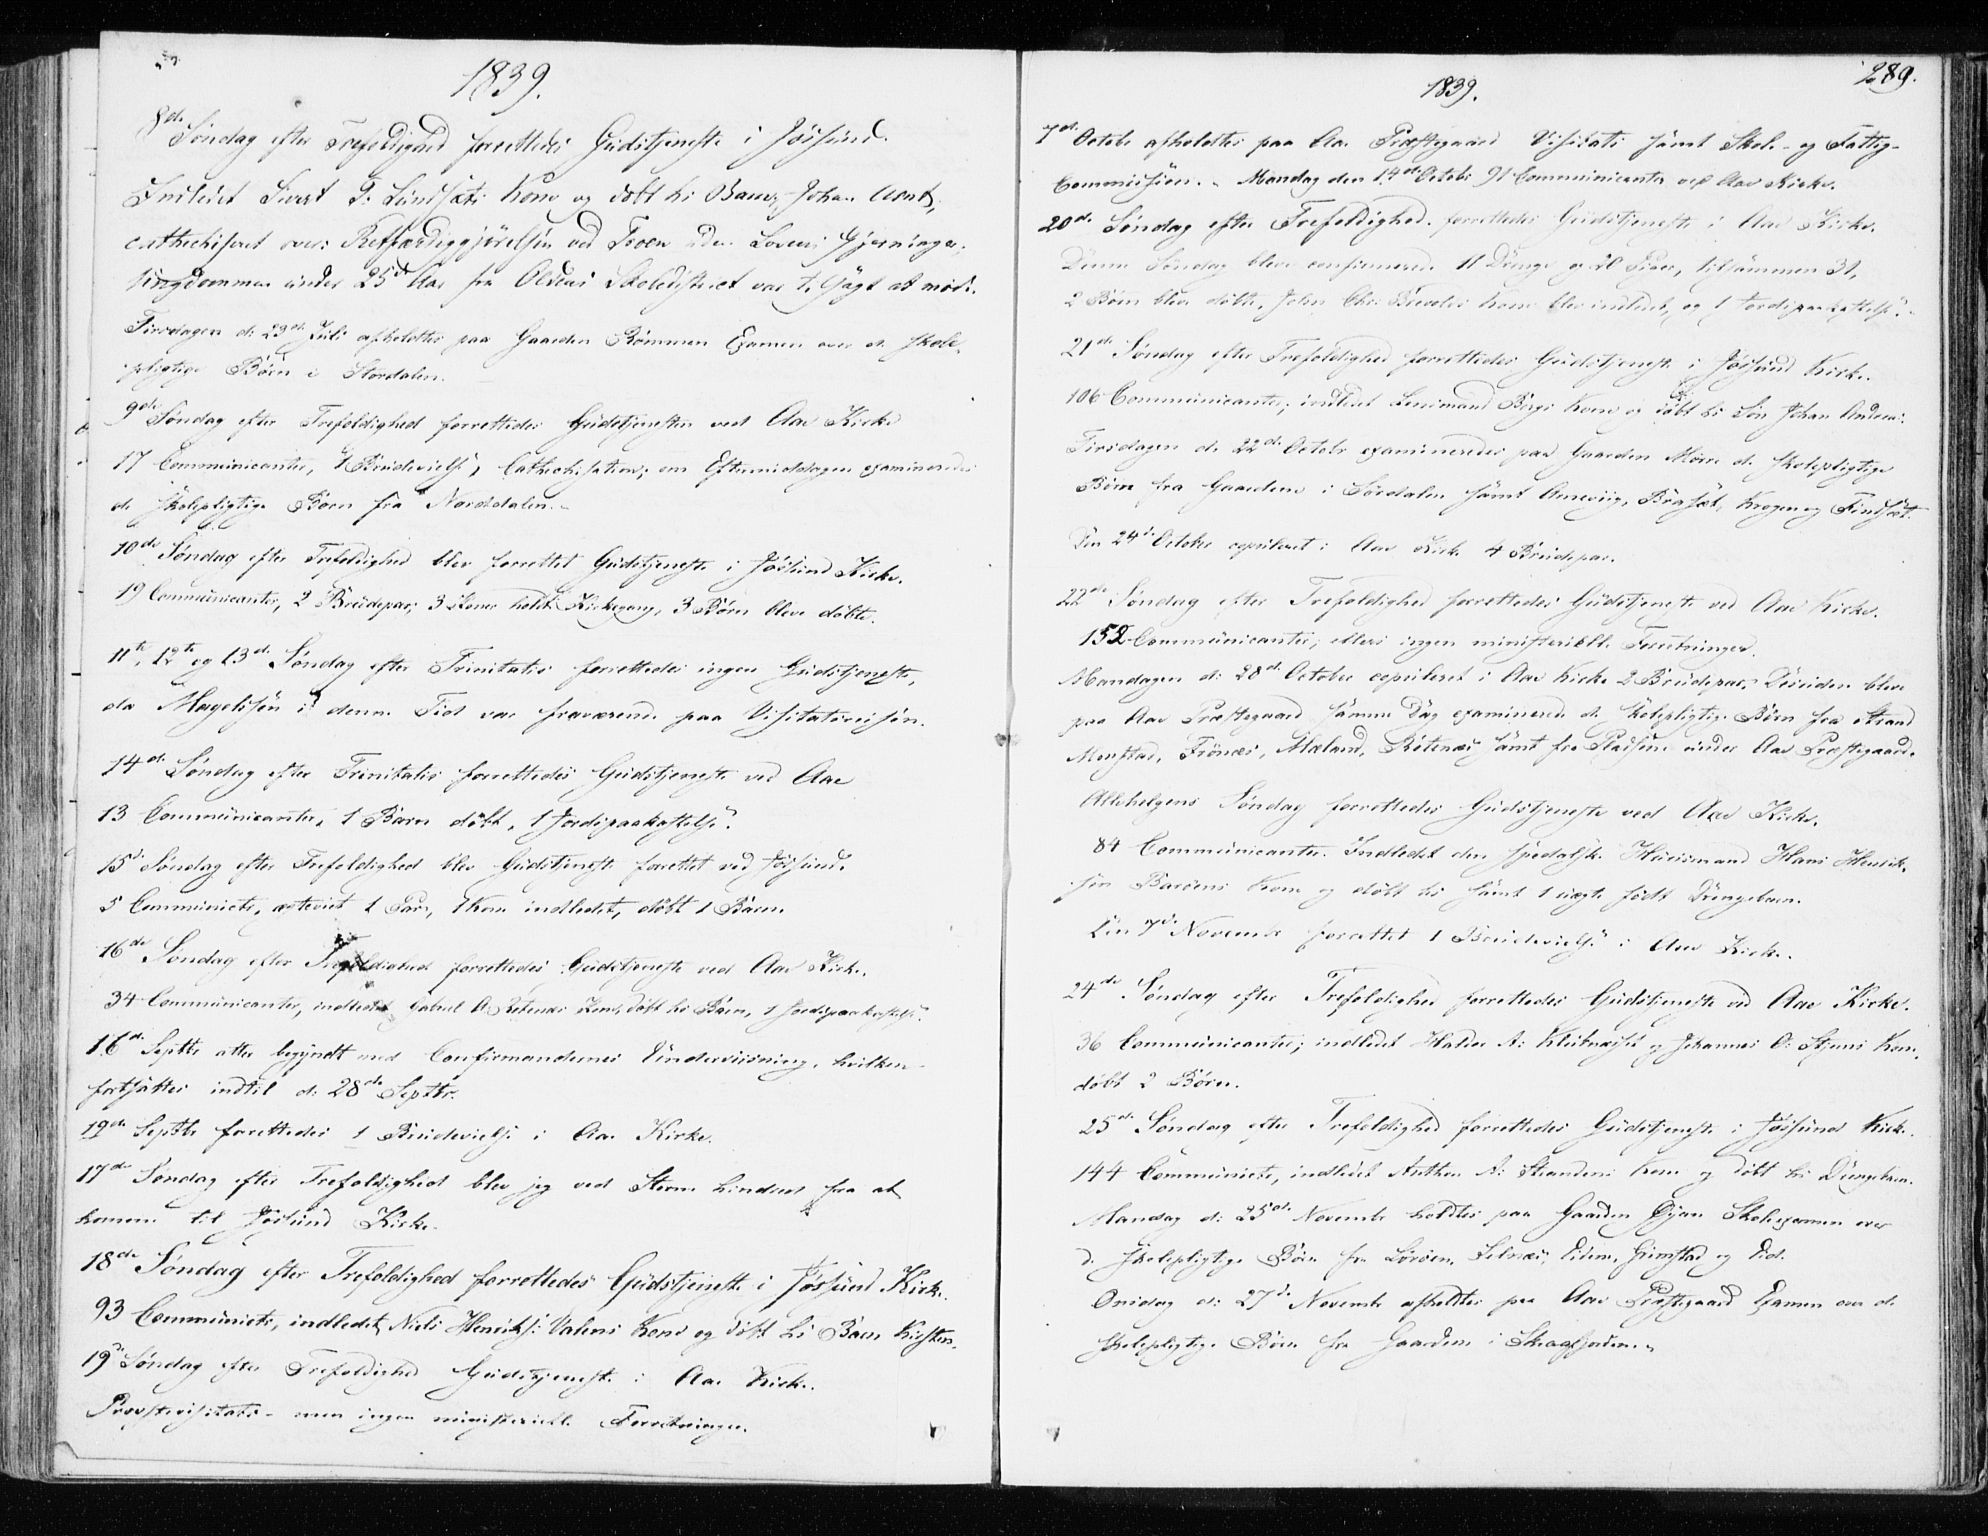 1839.
8de Søndag efter Trefoldighed forrettedes Gudstjeneste i Jøssund.
Indledet Sivert P. Sundsets Kone og døbt hs Barn Johan Arnt,
cathechiseret over: Retfærdiggjørelsen ved Troen uden Lovens Gjerninger;
Ungdommen under 25 Aar fra Oldens Skoledistrict var tilsagt at møde.
Tirsdagen d: 23de Juli afholdtes paa Gaarden Rømmen Examen over de skole-
pligtige Børn i Stordalen.
9de Søndag efter Trefoldighed forrettedes Gudstjenesten ved Aae Kirke
17 Communicanter, 1 Brudevielse, Cathechisation; om Eftermiddagen examineredes
de skolepligtige Børn fra Norddalen.
10de Søndag efter Trefoldighed blev forrettet Gudstjeneste i Jøssund Kirke.
19 Communicanter, 2 Brudepar; 3 Koner holdt Kirkegang, 3 Børn bleve døbte.
11te, 12te og 13de Søndag efter Trinitatis forrettedes ingen Gudstjeneste,
da Magelssen i denne Tid var fraværende paa Visitatsreisen.
14de Søndag efter Trinitatis forrettedes Gudstjeneste ved Aae
13 Communicanter, 1 Barn døbt, 1 Jordspaakastelse.
15de Søndag efter Trefoldighed blev Gudstjeneste forrettet ved Jøssund.
5 Communicts, ægteviet 1 Par, 1 Kone indledet, døbt 1 Barn.
16de Søndag efter Trefoldighed forrettedes Gudstjeneste ved Aae Kirke.
34 Communicanter, indledet Gabriel A. Retenæs Kone, døbt hs Barn, 1 Jordspaakastelse.
16de Septbr atter begyndt med Confirmandernes Underviisning, hvilken
fortsattes indtil d: 28de Septbr.
19de Septbr forrettedes 1 Brudevielse i Aae Kirke.
17de Søndag efter Trefoldighed blev jeg ved Storm hindret fra at
komme til Jøssund Kirke.
18de Søndag efter Trefoldighed forrettedes Gudstjeneste i Jøssund Kirke.
93 Communicts, indledet Niels Henriks: Valens Kone og døbt hs Barn Kirsten.
19de Søndag efter Trefoldighed Gudstjeneste i Aae Kirke.
Provstevisitats - men ingen ministerielle Forretninger.
289.
1839.
7de October afholdtes paa Aae Præstegaard Visitats samt Skole- og Fattig-
Commission. Mandag den 14de Octobr 91 Communicanter ved Aae Kirke.
20de Søndag efter Trefoldighed forrettedes Gudstjeneste i Aae Kirke.
Denne Søndag bleve confirmerede 11 Drenge og 20 Piger, tilsammen 31,
2 Børn bleve døbte, John Chr. Kone blev indledet, og 1 Jordspaakastelse.
21de Søndag efter Trefoldighed forrettedes Gudstjeneste i Jøssund Kirke.
106 Communicanter; indledet Lensmand Bergs Kone og døbt hs Søn Johan Andreas.
Tirsdagen d: 22de Octobr examineredes paa Gaarden Moen de skolepligtige
Børn fra Gaardene i Sørdalen samt Arnevig, Brasæt, Krogen og Findsæt.
Den 24de October copuleret i Aae Kirke 4 Brudepar.
22de Søndag efter Trefoldighed forrettedes Gudstjeneste ved Aae Kirke.
152 Communicanter; ellers ingen ministerielle Forretninger.
Mandagen d: 28de October copuleret i Aae Kirke 2 Brudepar. Desuden bleve
paa Aae Præstegaard samme Dag examinerede de skolepligtige Børn fra Strand
Monstad, Frønæs, Mæland, Retenæs samt fra Pladsene under Aae Præstegaard.
Allehelgens Søndag forrettedes Gudstjeneste ved Aae Kirke.
84 Communicanter. Indledet den spedalske Huusmand Hans Henrik-
sen Kone og døbt hs samt 1 uægte født Drengebarn.
Den 7de Novembr forrettet 1 Brudevielse i Aae Kirke.
24de Søndag efter Trefoldighed forrettedes Gudstjeneste ved Aae Kirke.
36 Communicanter; indledet Haldor A: og Johannes O: Kone,
døbt 2 Børn.
25de Søndag efter Trefoldighed forrettedes Gudstjeneste i Jøssund Kirke.
144 Communicts, indledet Anthon A: Strandens Kone og døbt hs Drengebarn.
Mandag d: 25de Novembr holdtes paa Gaarden Skoleexamen over
d. skolepligtige Børn fra Selnæs, Grimstad og
Onsdag d: 27de Novembr afholdtes paa Aae Præstegaard Examen over de
skolepligtige Børn fra Gaardene i Skaafjorden.